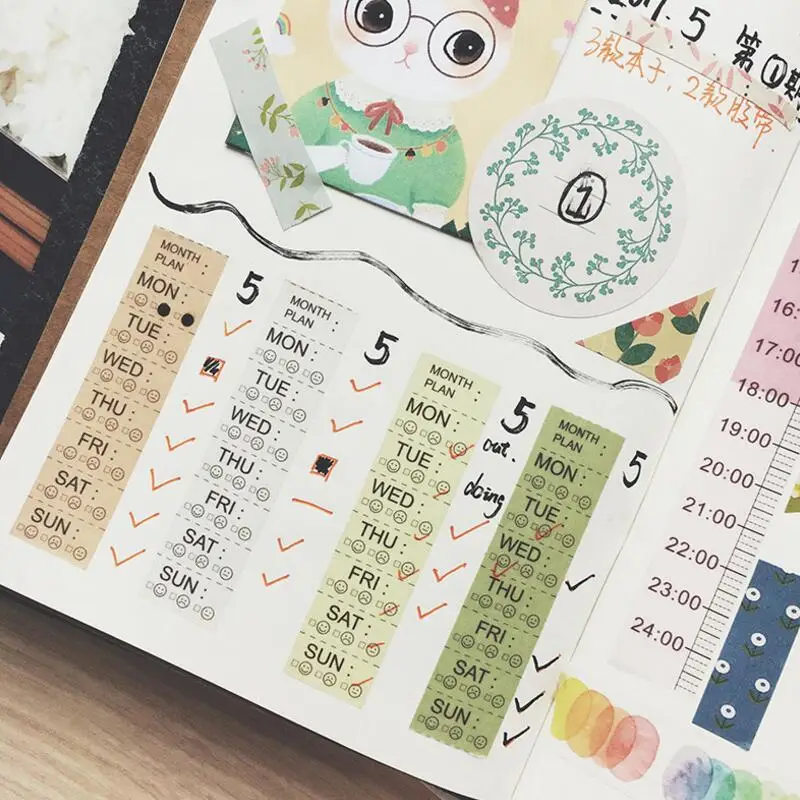 2017.5 第①期
3款本子，2款胶带.
1
MONTH PLAN :
MON :
TUE :
WED :
THU :
FRI :
SAT :
SUN :
5
MONTH PLAN :
MON :
TUE :
WED :
THU :
FRI :
SAT :
SUN :
5
MONTH PLAN :
MON :
TUE :
WED :
THU :
FRI :
SAT :
SUN :
5
out.
doing
MONTH PLAN :
MON :
TUE :
WED :
THU :
FRI :
SAT :
SUN :
5
16:
17:00
18:00
19:00
20:00
21:00
22:00
23:00
24:00